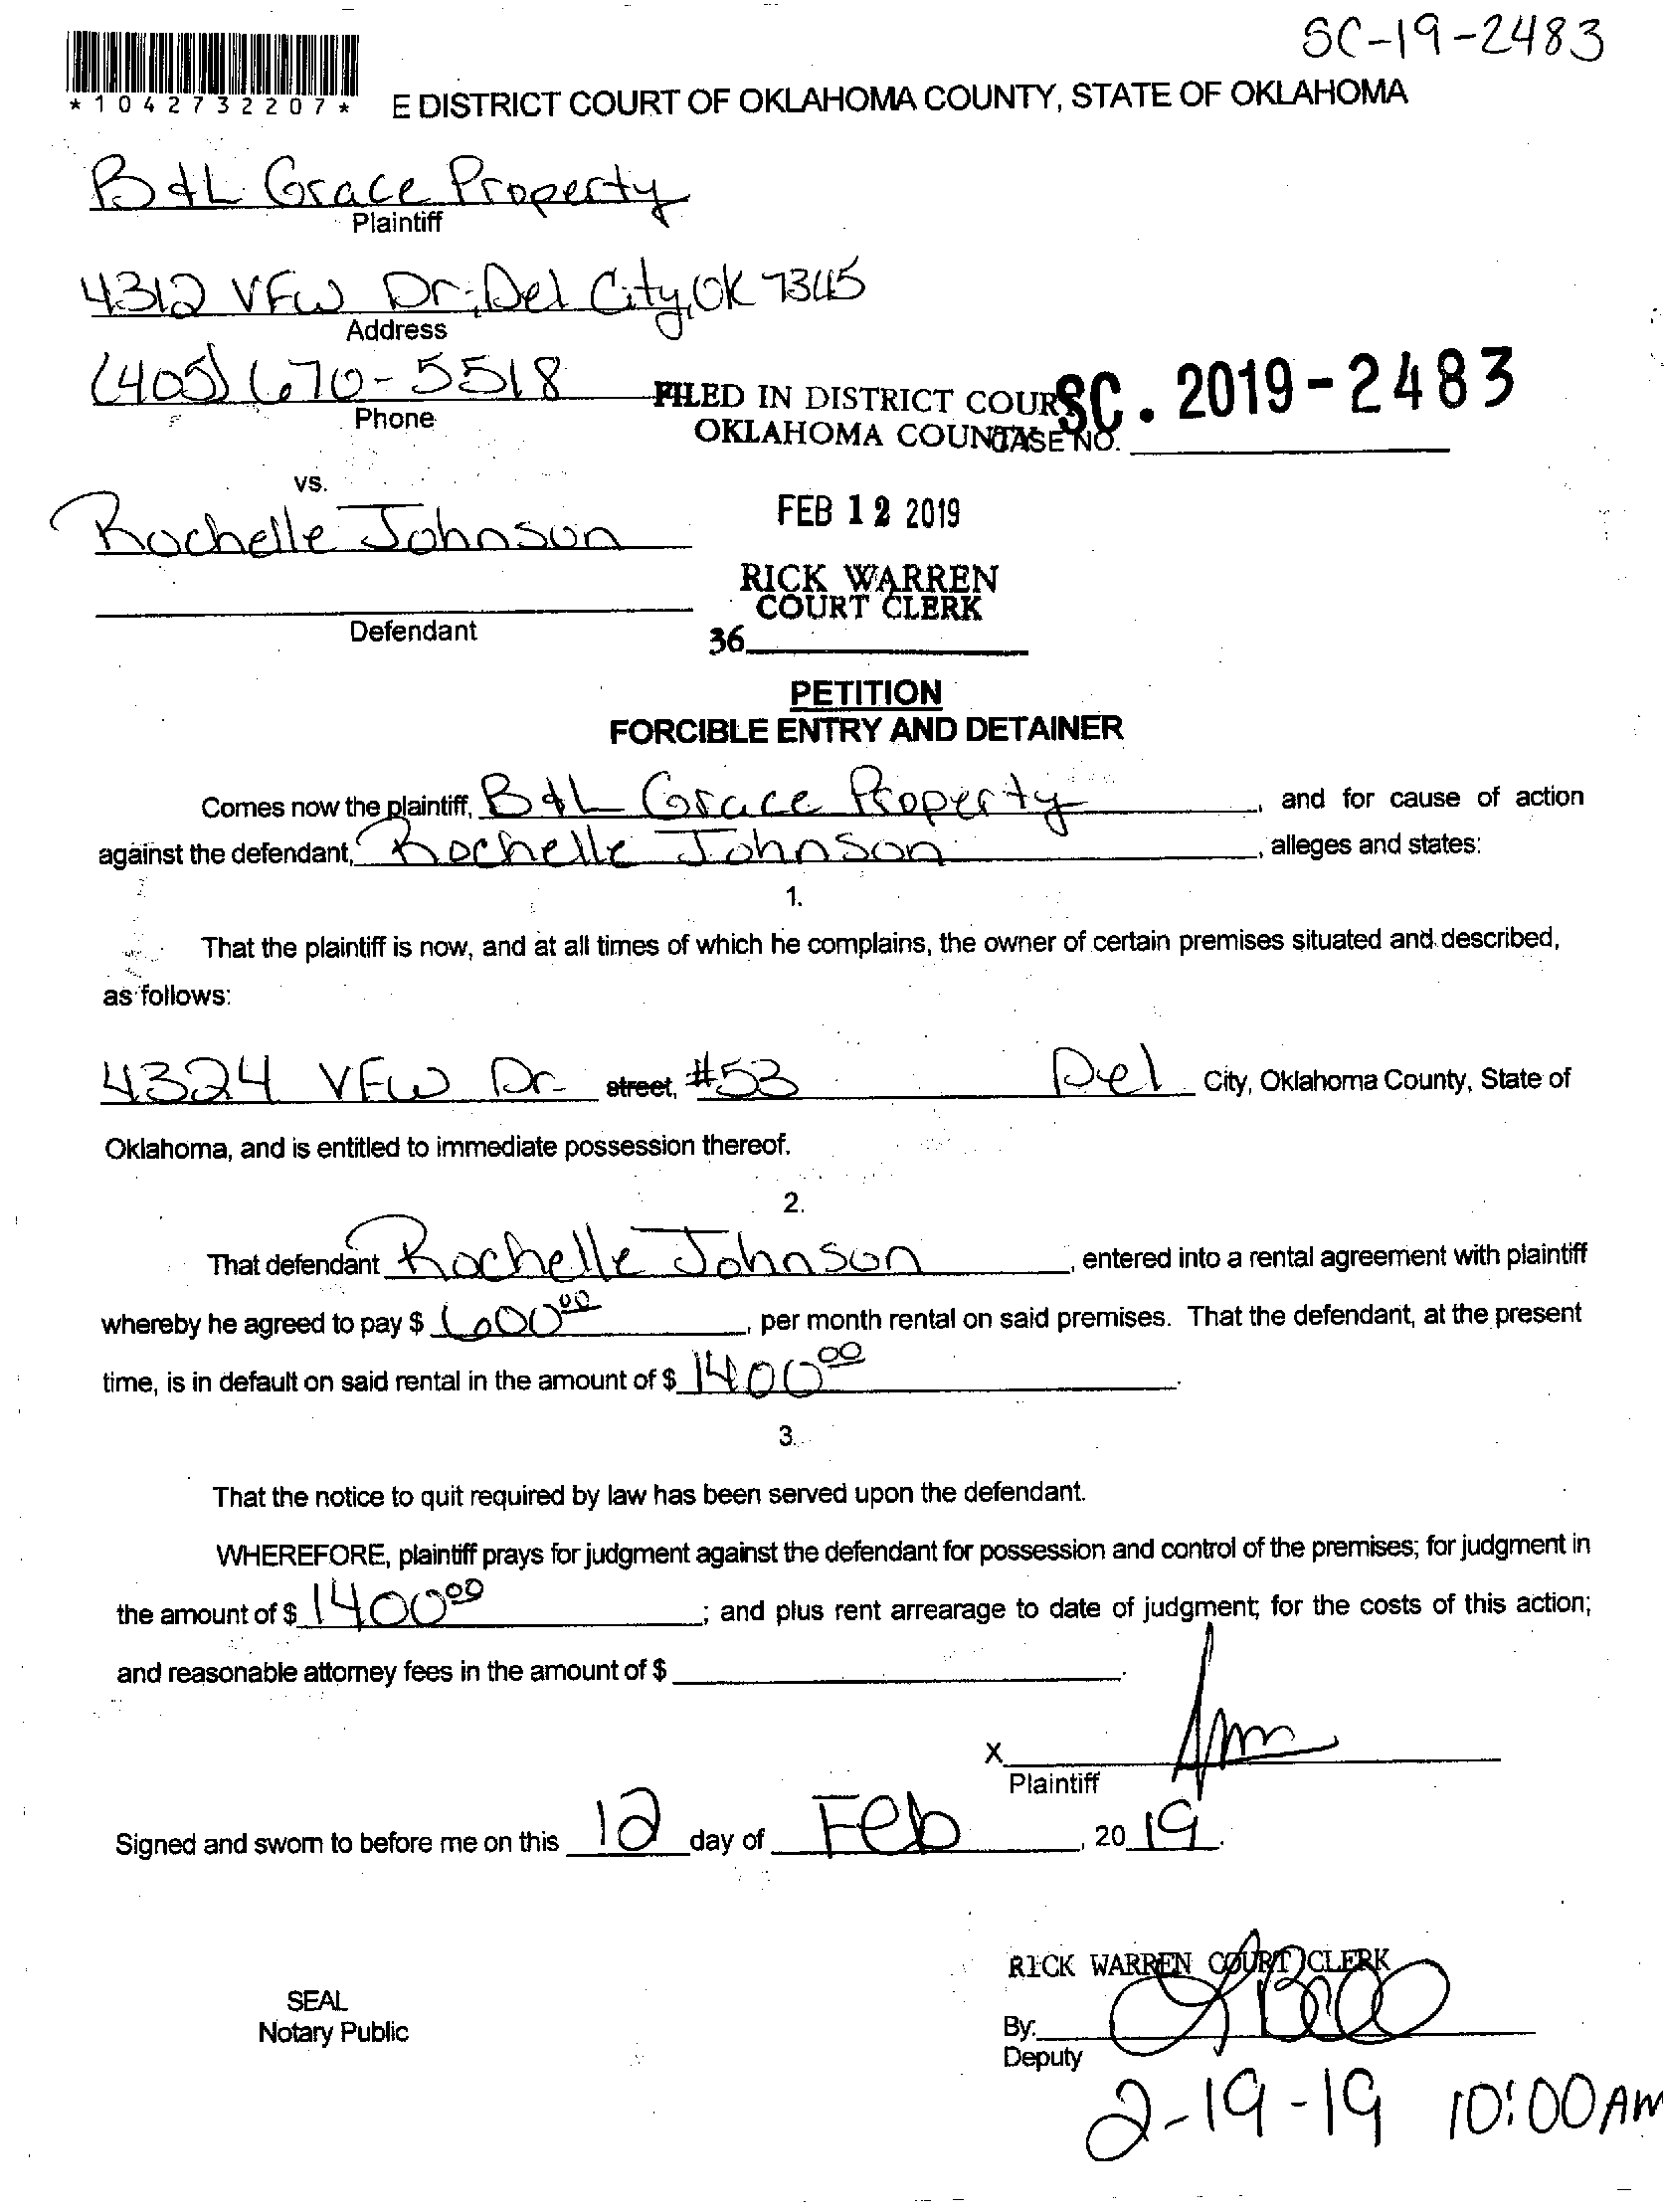 SC-19-2483
*1042732207*
E DISTRICT COURT OF OKLAHOMA COUNTY, STATE OF OKLAHOMA
B&L Grace Property
Plaintiff
4312 VFW Dr; Del City, OK 73115
Address
(405) 670-5518
Phone
FILED IN DISTRICT COURT
OKLAHOMA COUNTY
CASE NO. SC. 2019-2483
vs.
Rochelle Johnson
FEB 12 2019
RICK WARREN
COURT CLERK
Defendant
36
PETITION
FORCIBLE ENTRY AND DETAINER
Comes now the plaintiff, B&L Grace Property, and for cause of action
against the defendant, Rochelle Johnson, alleges and states:
1.
That the plaintiff is now, and at all times of which he complains, the owner of certain premises situated and described,
as follows:
4324 VFW Dr street, #53 Del City, Oklahoma County, State of
Oklahoma, and is entitled to immediate possession thereof.
2.
That defendant Rochelle Johnson, entered into a rental agreement with plaintiff
whereby he agreed to pay $ 600 00, per month rental on said premises. That the defendant, at the present
time, is in default on said rental in the amount of $ 1400 00.
3.
That the notice to quit required by law has been served upon the defendant.
WHEREFORE, plaintiff prays for judgment against the defendant for possession and control of the premises; for judgment in
the amount of $ 1400 00; and plus rent arrearage to date of judgment; for the costs of this action;
and reasonable attorney fees in the amount of $
X
Plaintiff
Signed and sworn to before me on this 12 day of Feb, 2019.
RICK WARREN COURT CLERK
SEAL
Notary Public
By:
Deputy
2-19-19 10:00 AM